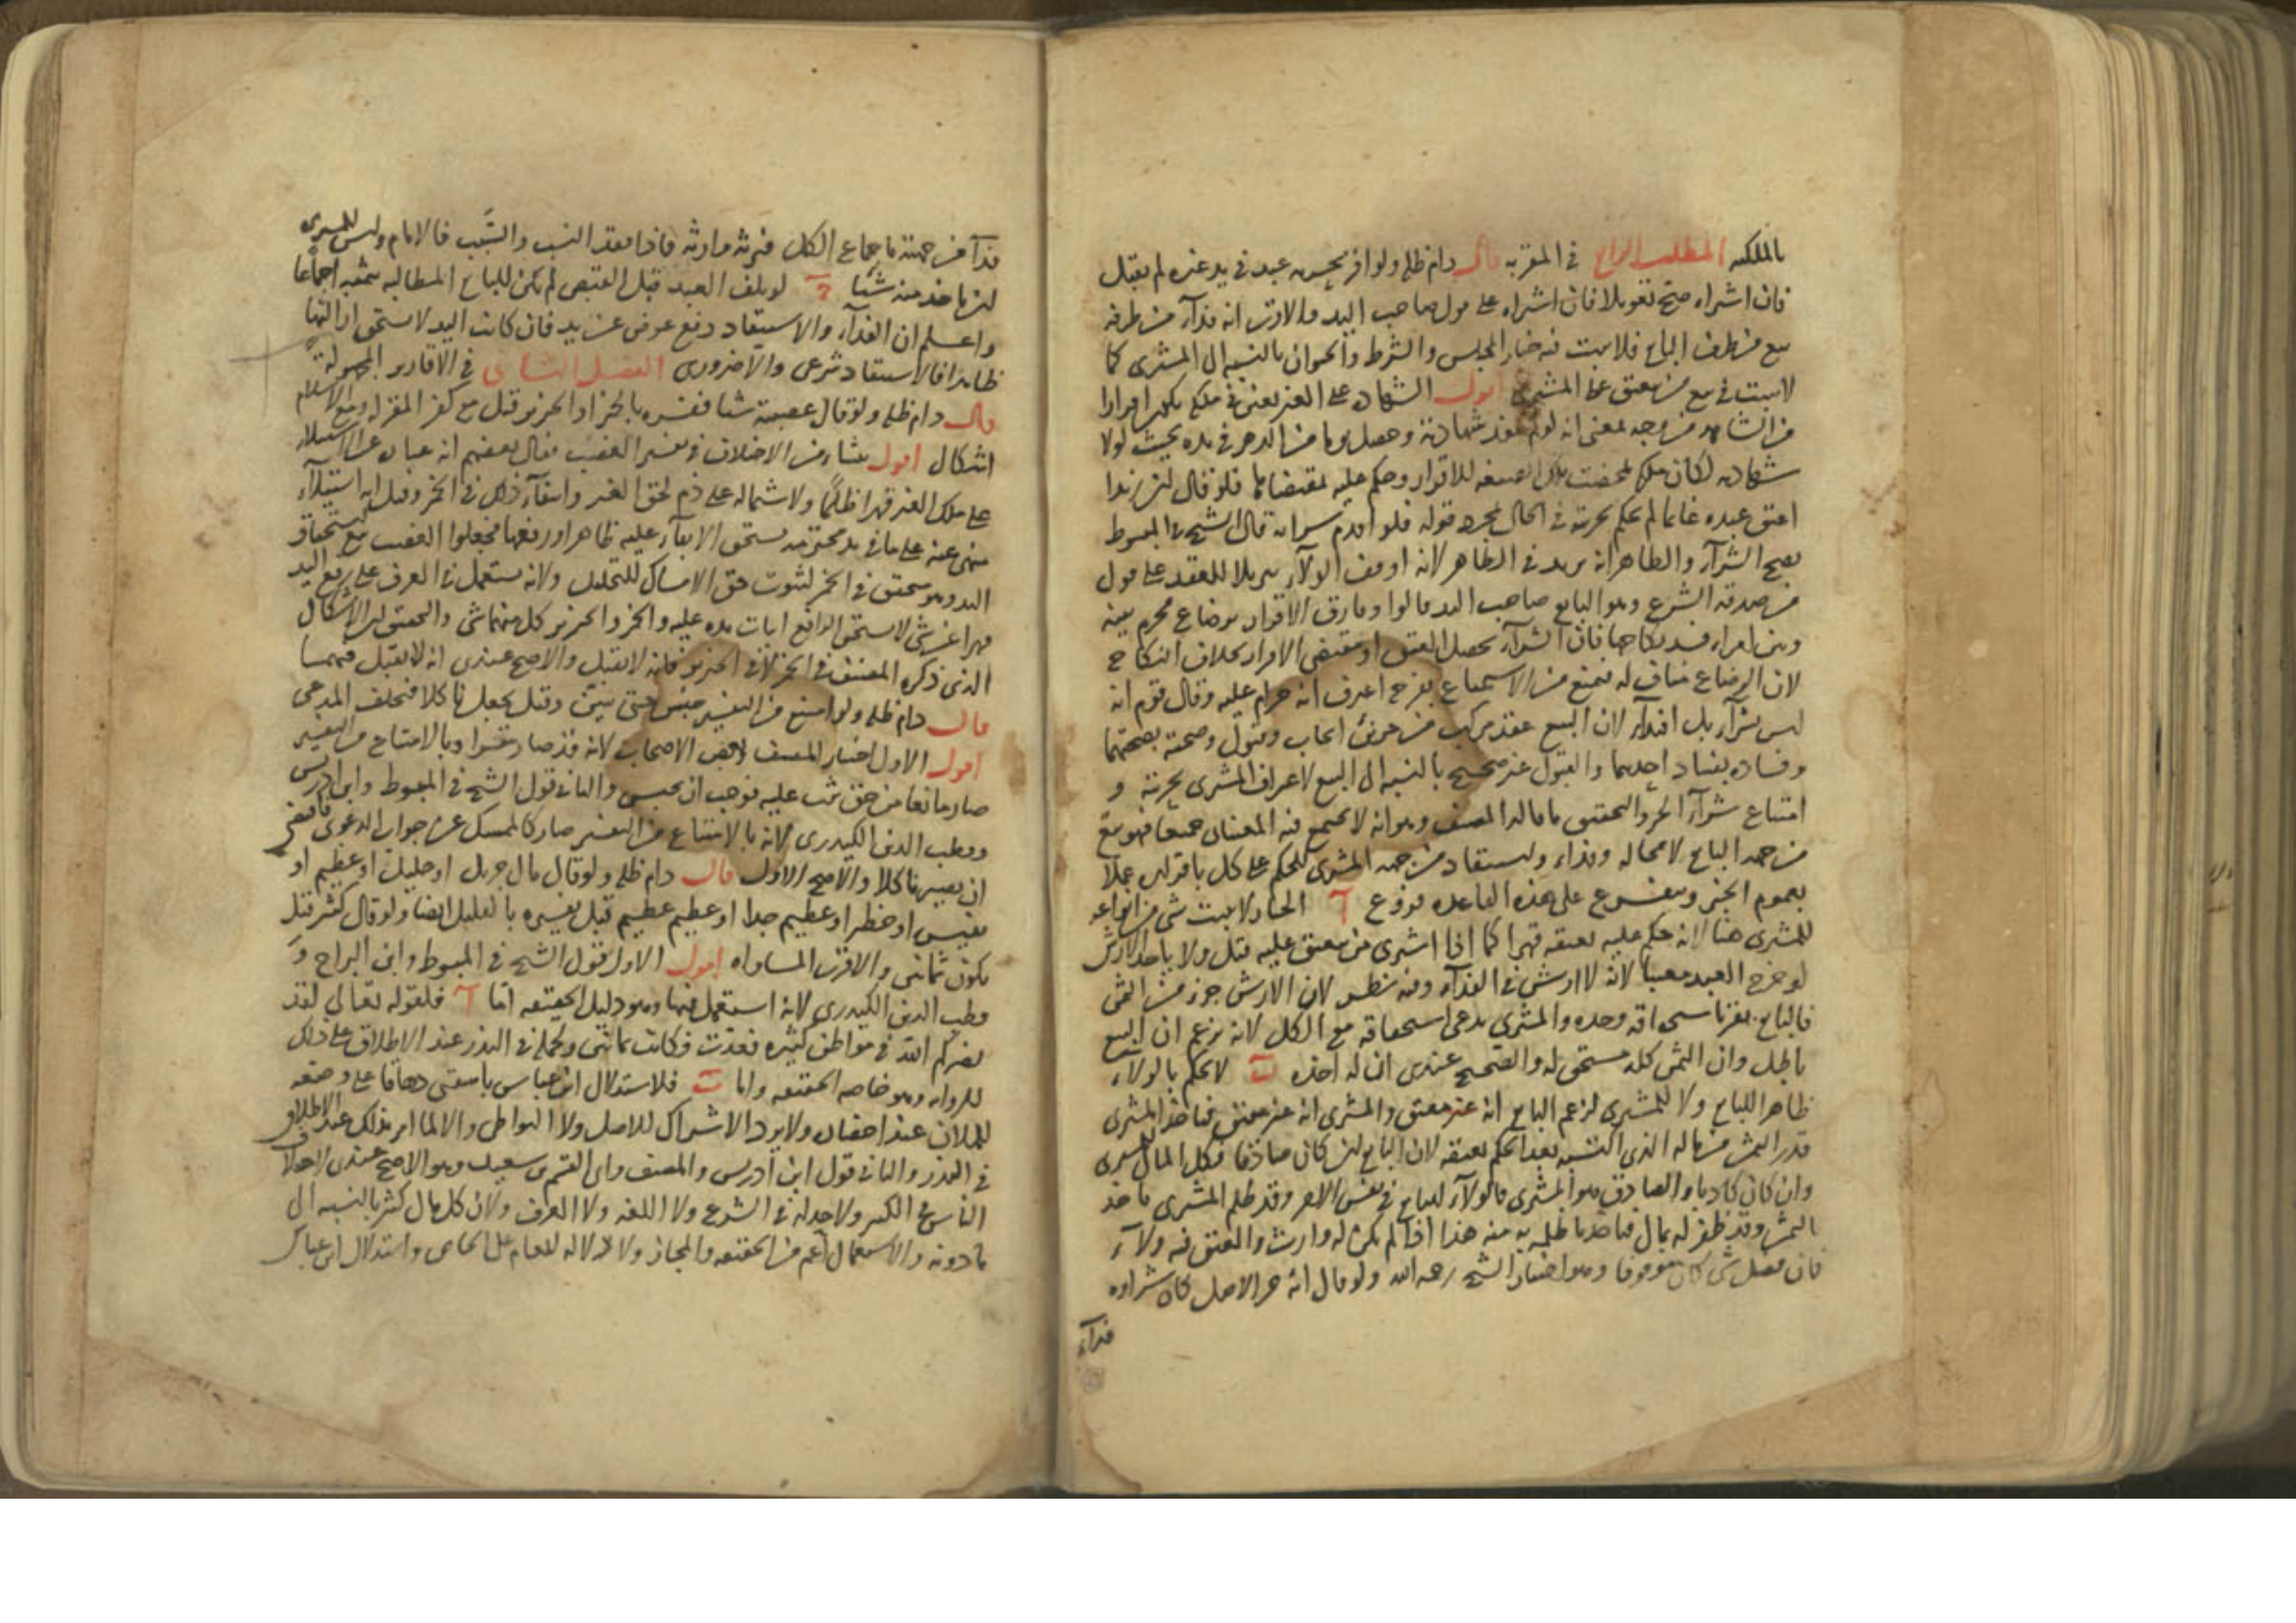 بالملكيه المطلب الرابع في المقر به قال دام ظله ولو اقر بحريه عبد في يد غيره لم يقبل
فان اشتراه صح تعويلا فان اشتراه على قول صاحب اليد والاقرب انه فداء من طرفه
بيع من طرف البايع فلا يثبت فيه خيار المجلس والشرط والحيوان بالنسبه الى المشترى كما
لا يثبت في بيع من يعتق على المشترى اقول الشهاده على الغير بعتق في ملكه يكون اقرارا
من الشاهد من وجه بمعنى انه لو لم تنفذ شهادته وحصل يوما من الدهر في يده بحيث لولا
شهادته لكان ملكه لمحضت تلك الصيغه للاقرار وحكم عليه بمقتضاها فلو قال ان زيدا
اعتق عبده غانما لم يحكم بحريته في الحال بمجرد قوله فلو اقدم شرائه قال الشيخ في المبسوط
يصح الشرآء والظاهر انه يريد في الظاهر لانه اوقف الولاء تنزيلا للعقد على قول
من صدقه الشرع وهو البايع صاحب اليد قالوا وفارق الاقرار برضاع محرم بينه
وبين امراه فسد نكاحها فان الشرآء يحصل العتق او مقتضى الاقرار بخلاف النكاح
لان الرضاع مناف له فيمنع من الاستمتاع بفرج اعترف انه حرام عليه وقال قوم انه
ليس بشرآء بل افتدآء لان البيع عقد مركب من جزئين ايجاب وقبول وصحته بصحتهما
وفساده بفساد احدهما والقبول غير صحيح بالنسبه الى البيع لاعتراف المشترى بحريته و
امتناع شرآء الحر والتحقيق ما قاله المصنف وهو انه لا يجتمع فيه المعنيان جميعا فهو بيع
من جهه البايع لا محاله وفداء واستنقاذ من جهه المشترى للحكم على كل باقراره عملا
بعموم الخبر ويتفرع على هذه القاعده فروع آ الخيار ولا يثبت شى من انواعه
للمشترى هنا لانه حكم عليه بعتقه قهرا كما اذا اشترى من يعتق عليه قيل ولا ياخذ الارش
لو خرج العبد معيبا لانه لا ارش في الفدآء وفيه نظر لان الارش جزء من الثمن
فالبايع يقر باستحقاقه وحده والمشترى يدعى استحقاقه مع الكل لانه يزعم ان البيع
باطل وان الثمن كله مستحق له والصحيح عندى ان له اخذه ب لا يحكم بالولاء
ظاهرا للبايع ولا للمشترى لزعم البايع انه غير معتق والمشترى انه غير معتق فياخذ المشترى
قدر الثمن من ماله الذى اكتسبه بعد الحكم بعتقه لان البايع ان كان صادقا فكل المال للمشترى
وان كان كاذبا والصادق هو المشترى فالولاء للبايع في نفس الامر وقد ظلم المشترى باخذ
الثمن وقد ظفر له بمال فياخذ ما ظلمه به منه هذا اذا لم يكن له وارث والمعتق فيه ولاء
فان فضل شى كان موقوفا وهو اختيار الشيخ رحمه الله ولو قال انه حر الاصل كان شراوه
فدآء
فدآء من جهته باجماع الكل فيرثه وارثه فاذا فقد النسب والسبب فالامام وليس للمشترى
ان ياخذ منه شيئا ج لو تلف العبد قبل القبض لم يكن للبايع المطالبه بثمنه اجماعا
واعلم ان الفدآء والاستنقاذ دفع عوض عن يد فان كانت اليد لا تستحق ازالتها
ظاهرا فالاستنقاذ شرعى والا ضرورى الفصل الثانى في الاقارير المجهوله
قال دام ظله ولو قال غصبته شيئا ففسره بالخمر او الخنزير قبل مع كفر المقر له ومع الاسلام
اشكال اقول منشاء من الاختلاف في تفسير الغصب فقال بعضهم انه عباره عن الاستيلاء
على ملك الغير قهرا ظلما ولاشتماله على ذم لحق الغير وانتفآء ذلك في الخمر وقيل انه استيلآء
منهى عنه على ما في يد محترمه يستحق الابقآء عليه ظاهرا ورفعها فجعلوا الغصب مع استحقاق
اليد وهو متحقق في الخمر لثبوت حق الامساك للتخليل ولانه يستعمل في العرف على رفع اليد
قهرا عن شى لا يستحق الرافع اثبات يده عليه والخمر والخنزير كل منهما شى والتحقيق ان الاشكال
الذى ذكره المصنف في الخمر لا في الخنزير فانه لا يقبل والاصح عندى انه لا يقبل فيهما
قال دام ظله ولو امتنع من التفسير حبس حتى يبين وقيل يجعل ناكلا فيحلف المدعى
اقول الاول اختيار المصنف وبعض الاصحاب لانه قد صار مقرا وبالامتناع من التفسير
صار مانعا من حق ثبت عليه فوجب ان يحبس والثانى قول الشيخ في المبسوط وابن ادريس
وقطب الدين الكيدرى لانه بالامتناع من التفسير صار كالممسك عن جواب الدعوى فاقتضى
ان يصير ناكلا والاصح الاول قال دام ظله ولو قال مال جزيل او جليل او عظيم او
نفيس او خطير او عظيم جدا او عظيم عظيم قبل تفسيره بالقليل ايضا ولو قال كثير قيل
يكون ثمانين والاقرب المساواه اقول الاول قول الشيخ في المبسوط وابن البراج و
قطب الدين الكيدرى لانه استعمل فيها وهو دليل الحقيقه اما آ فلقوله تعالى لقد
نصركم الله في مواطن كثيره فعدت فكانت ثمانين وكحمله في النذر عند الاطلاق على ذلك
للروايه وهو خاصه الحقيقه واما ب فلاستدلال ابن عباس باسقنى دهاقا على وضعه
للملآن عند احقاق ولا يرد الاشتراك للاصل ولا التواطى والا لما امر بذلك عند الاطلاق
في النذر والثانى قول ابن ادريس والمصنف وابى القسم بن سعيد وهو الاصح عندى لاختلاف
الناس في الكثير ولا حد له في الشرع ولا اللغه ولا العرف ولان كل مال كثير بالنسبه الى
ما دونه والاستعمال اعم من الحقيقه والمجاز ولا دلاله للعام على الخاص واستدلال ابن عباس